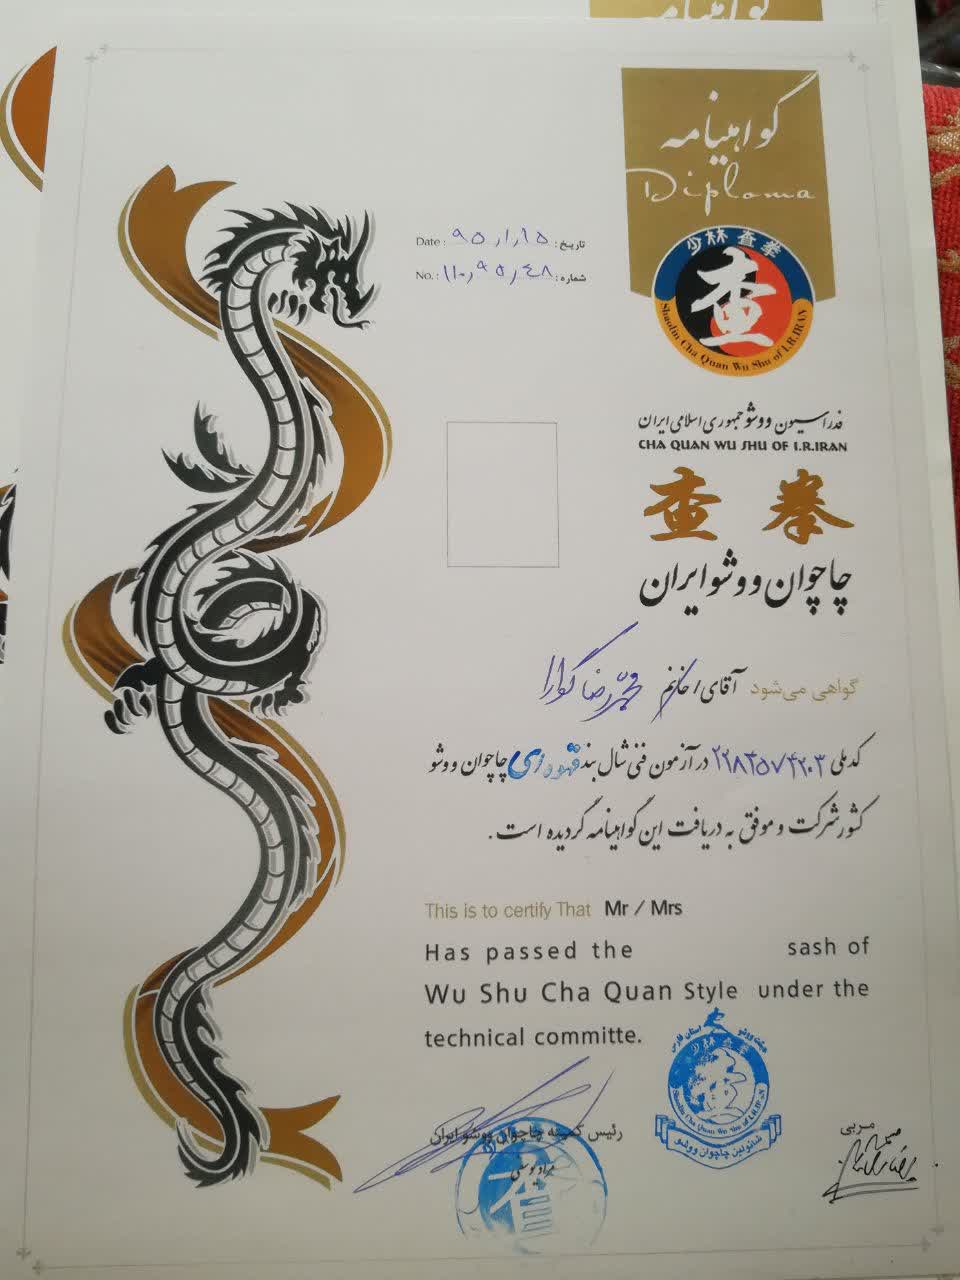 گواهینامه
Diploma
تاریخ: ۹۵/۱/۱۵ Date:
شماره: ۱۱۰/۹۵/۴۸ No.:
少林查拳
查
Shaolin Cha Quan Wu Shu of I.R.IRAN
فدراسیون ووشو جمهوری اسلامی ایران
CHA QUAN WU SHU OF I.R.IRAN
查 拳
چاچوان ووشو ایران
گواهی می‌شود آقای / خانم محمدرضا گوارا
کد ملی ۲۲۸۳۵۷۴۲۰۳ در آزمون فنی شال بند قهوه‌ای چاچوان ووشو
کشور شرکت و موفق به دریافت این گواهینامه گردیده است.
This is to certify That Mr / Mrs
Has passed the sash of
Wu Shu Cha Quan Style under the
technical committe.
هیئت ووشو استان فارس
少林查拳
Shaolin Cha Quan Wu Shu of I.R.IRAN
شائولین چاچوان ووشو
رئیس کمیته چاچوان ووشو ایران
مراد یوسفی
مربی